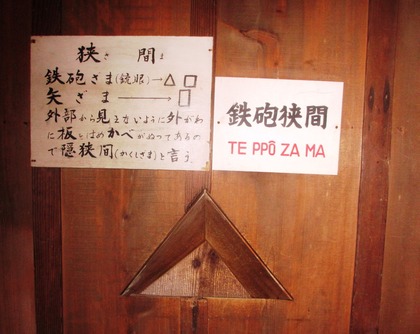 狭さ間ま
鉄砲ざま(鏡眼)→△□
矢ざま→□
外部から見えないように外がわ
に板をはめかべがぬってあるの
で隠狭間(かくしざま)と言う。
鉄砲狭間
TE PPÔ ZA MA